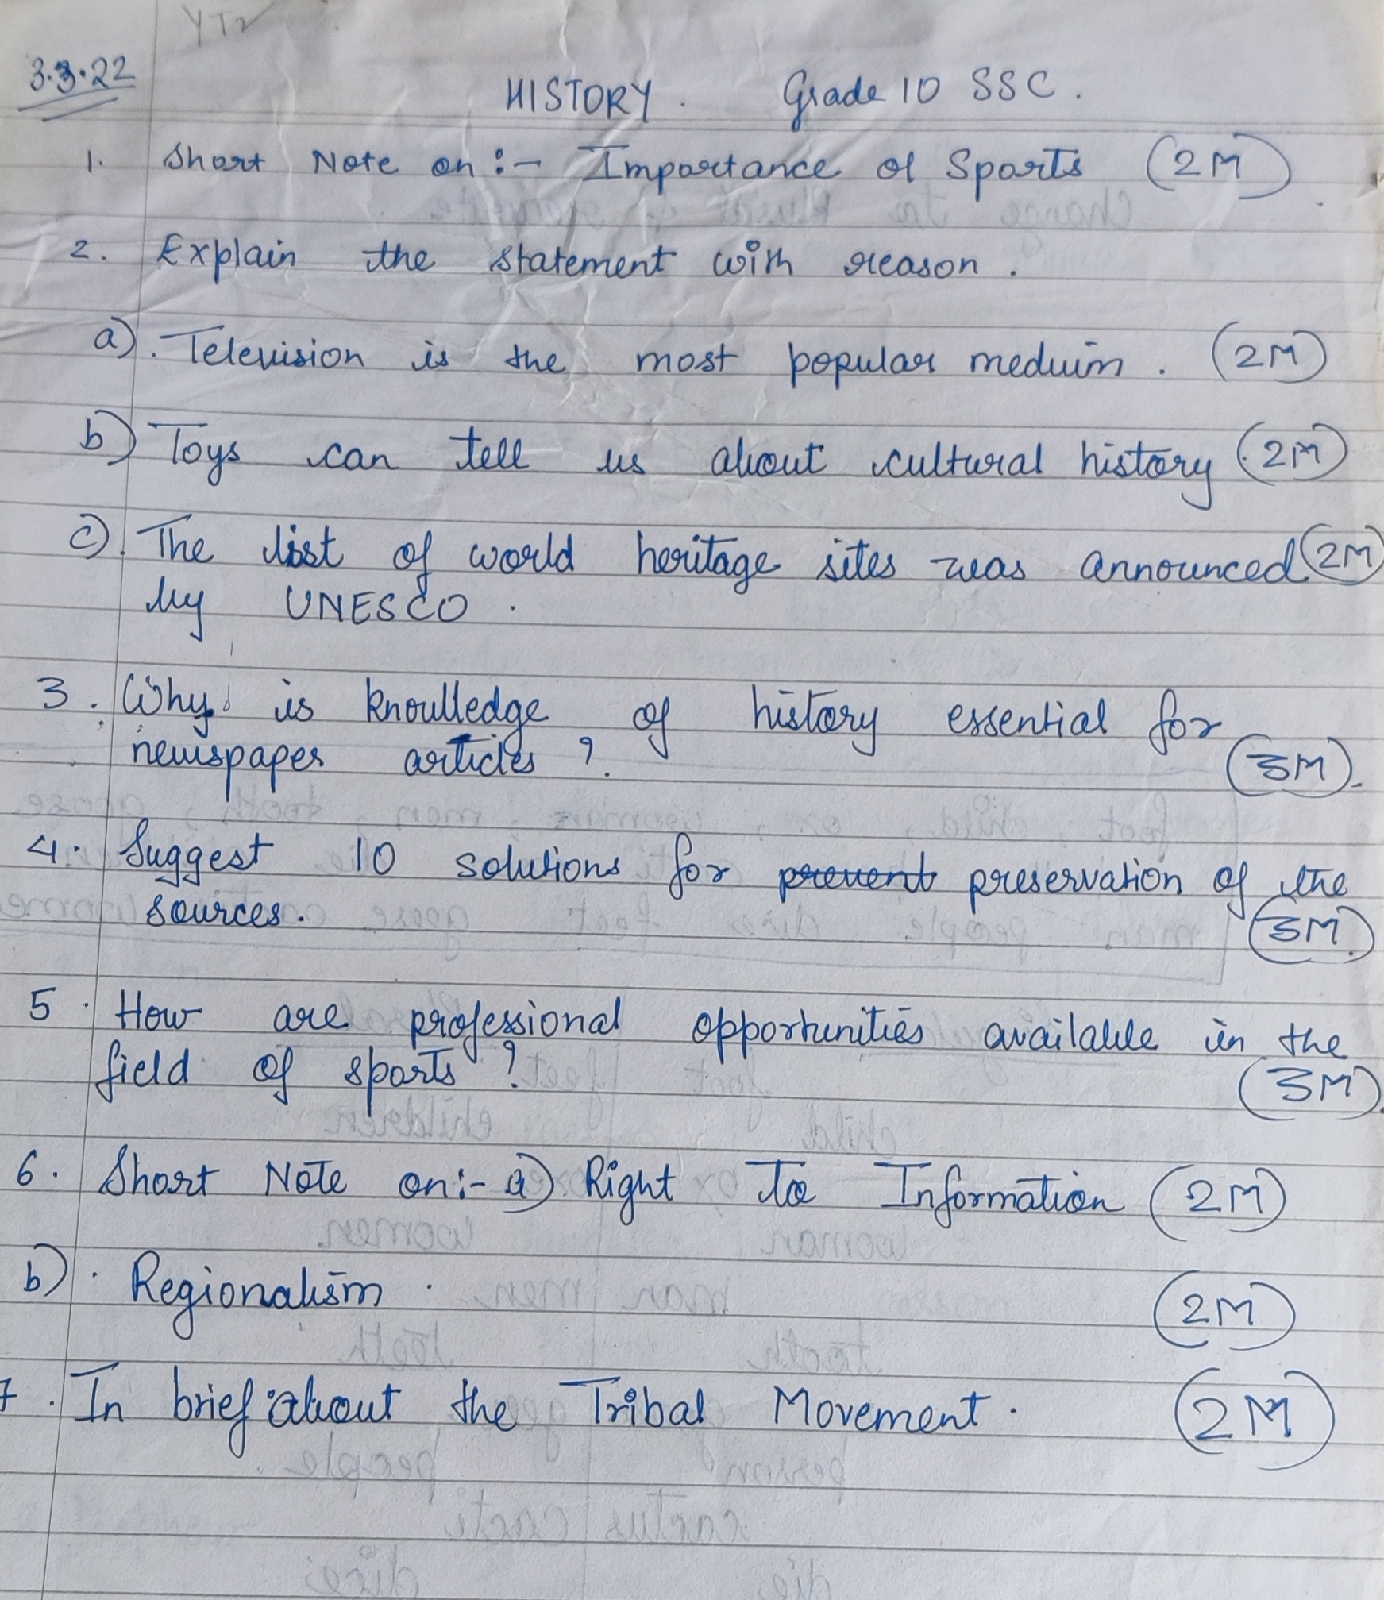 YT2
3.3.22
HISTORY. Grade 10 SSC.
1. Short Note on :- Importance of Sports (2M)
2. Explain the statement with reason.
a). Television is the most popular meduim. (2M)
b) Toys can tell us about cultural history (2M)
c) The list of world heritage sites was announced (2M)
by UNESCO.
3. Why is knoulledge of history essential for
newspaper articles ? (3M).
4. Suggest 10 solutions for prevent preservation of the
sources. (3M)
5. How are professional opportunities available in the
field of sports ? (3M).
6. Short Note on:- a) Right To Information (2M)
b). Regionalism. (2M)
7. In brief about the Tribal Movement. (2M)